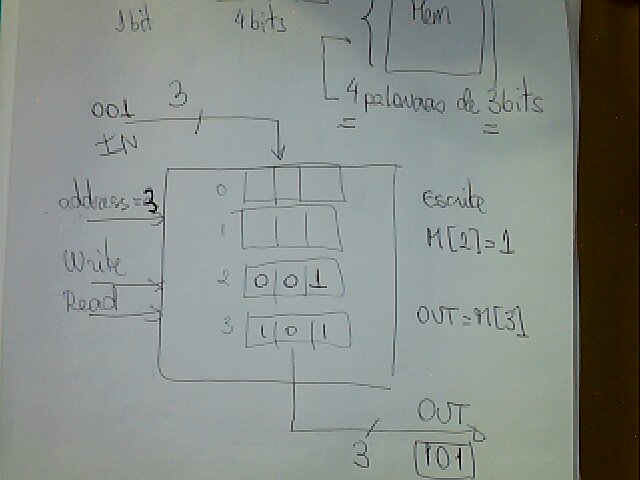 1bit 4bits
Mem
4 palavras de 3bits
001 3
IN
address=3
Write
Read
0
1
2 0 0 1
3 1 0 1
Escrite
M[2]=1
OUT=M[3]
OUT
3 101